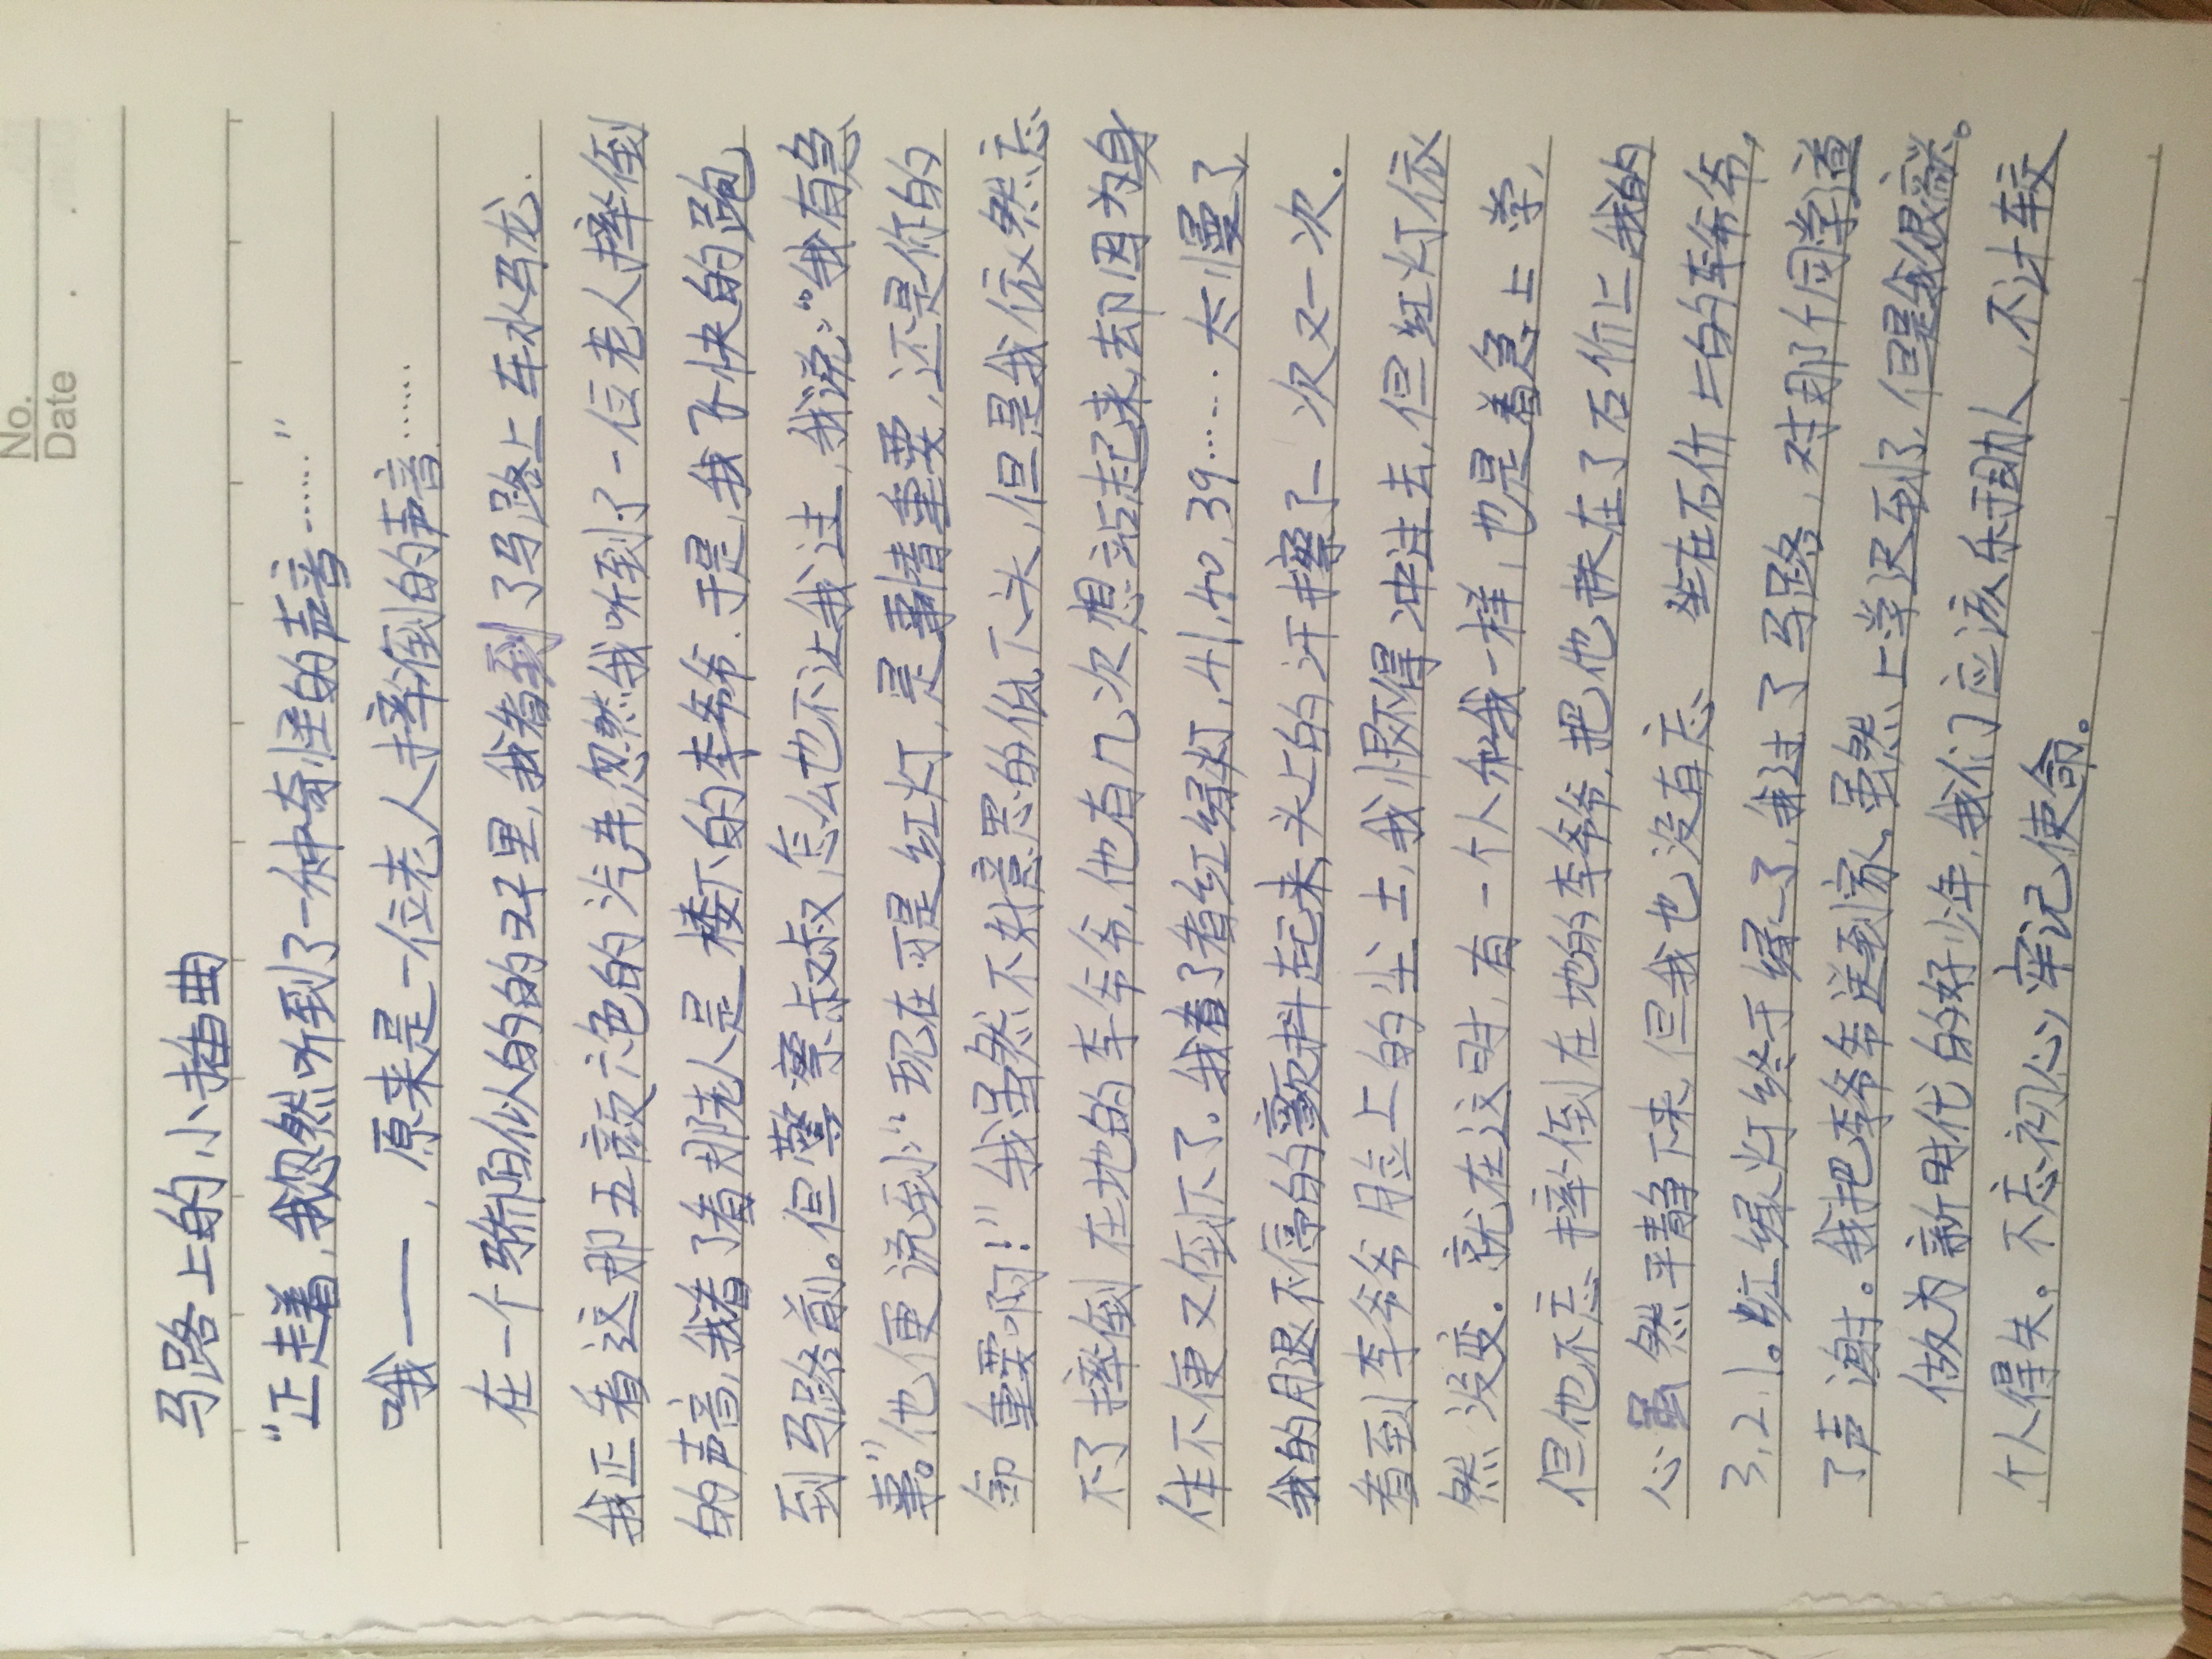 No.
Date . .
马路上的小插曲
“正走着,我忽然听到了一种奇怪的声音……”
哦——,原来是一位老人摔倒的声音……
在一个骄阳似的的的日子里,我看到了马路上车水马龙.
我正看这那五颜六色的汽车,忽然我听到了一位老人摔倒
的声音,我看了看那老人是楼下的李爷爷.于是,我飞快的跑
到马路前。但警察叔叔怎么也不让我过,我说:“我有急
事。”他便说到:“现在可是红灯,是事情重要,还是你的
命重要啊!”我虽然不好意思的低下头,但是我依然忘
不了摔倒在地的李爷爷,他有几次想站起来,却因为身
体不便又倒下了。我看了看红绿灯,41,40,39……太慢了,
我的腿不停的颤抖起来,头上的汗擦了一次又一次.
看到李爷爷用脸上的尘土,我恨不得冲过去,但红灯依
然没变.就在这时,有一个人和我一样,也是着急上学,
但他不忘摔倒在地的李爷爷,把他扶在了石价上,我的
心虽然平静下来,但我也没有忘坐在石价上的李爷爷,
3,2,1。红绿灯终于绿了,我过了马路,对那个同学道
了声谢。我把李爷爷送到家,虽然上学迟到了,但是我很
做为新时代的好少年,我们应该乐于助人,不计较
个人得失。不忘初心,牢记使命。